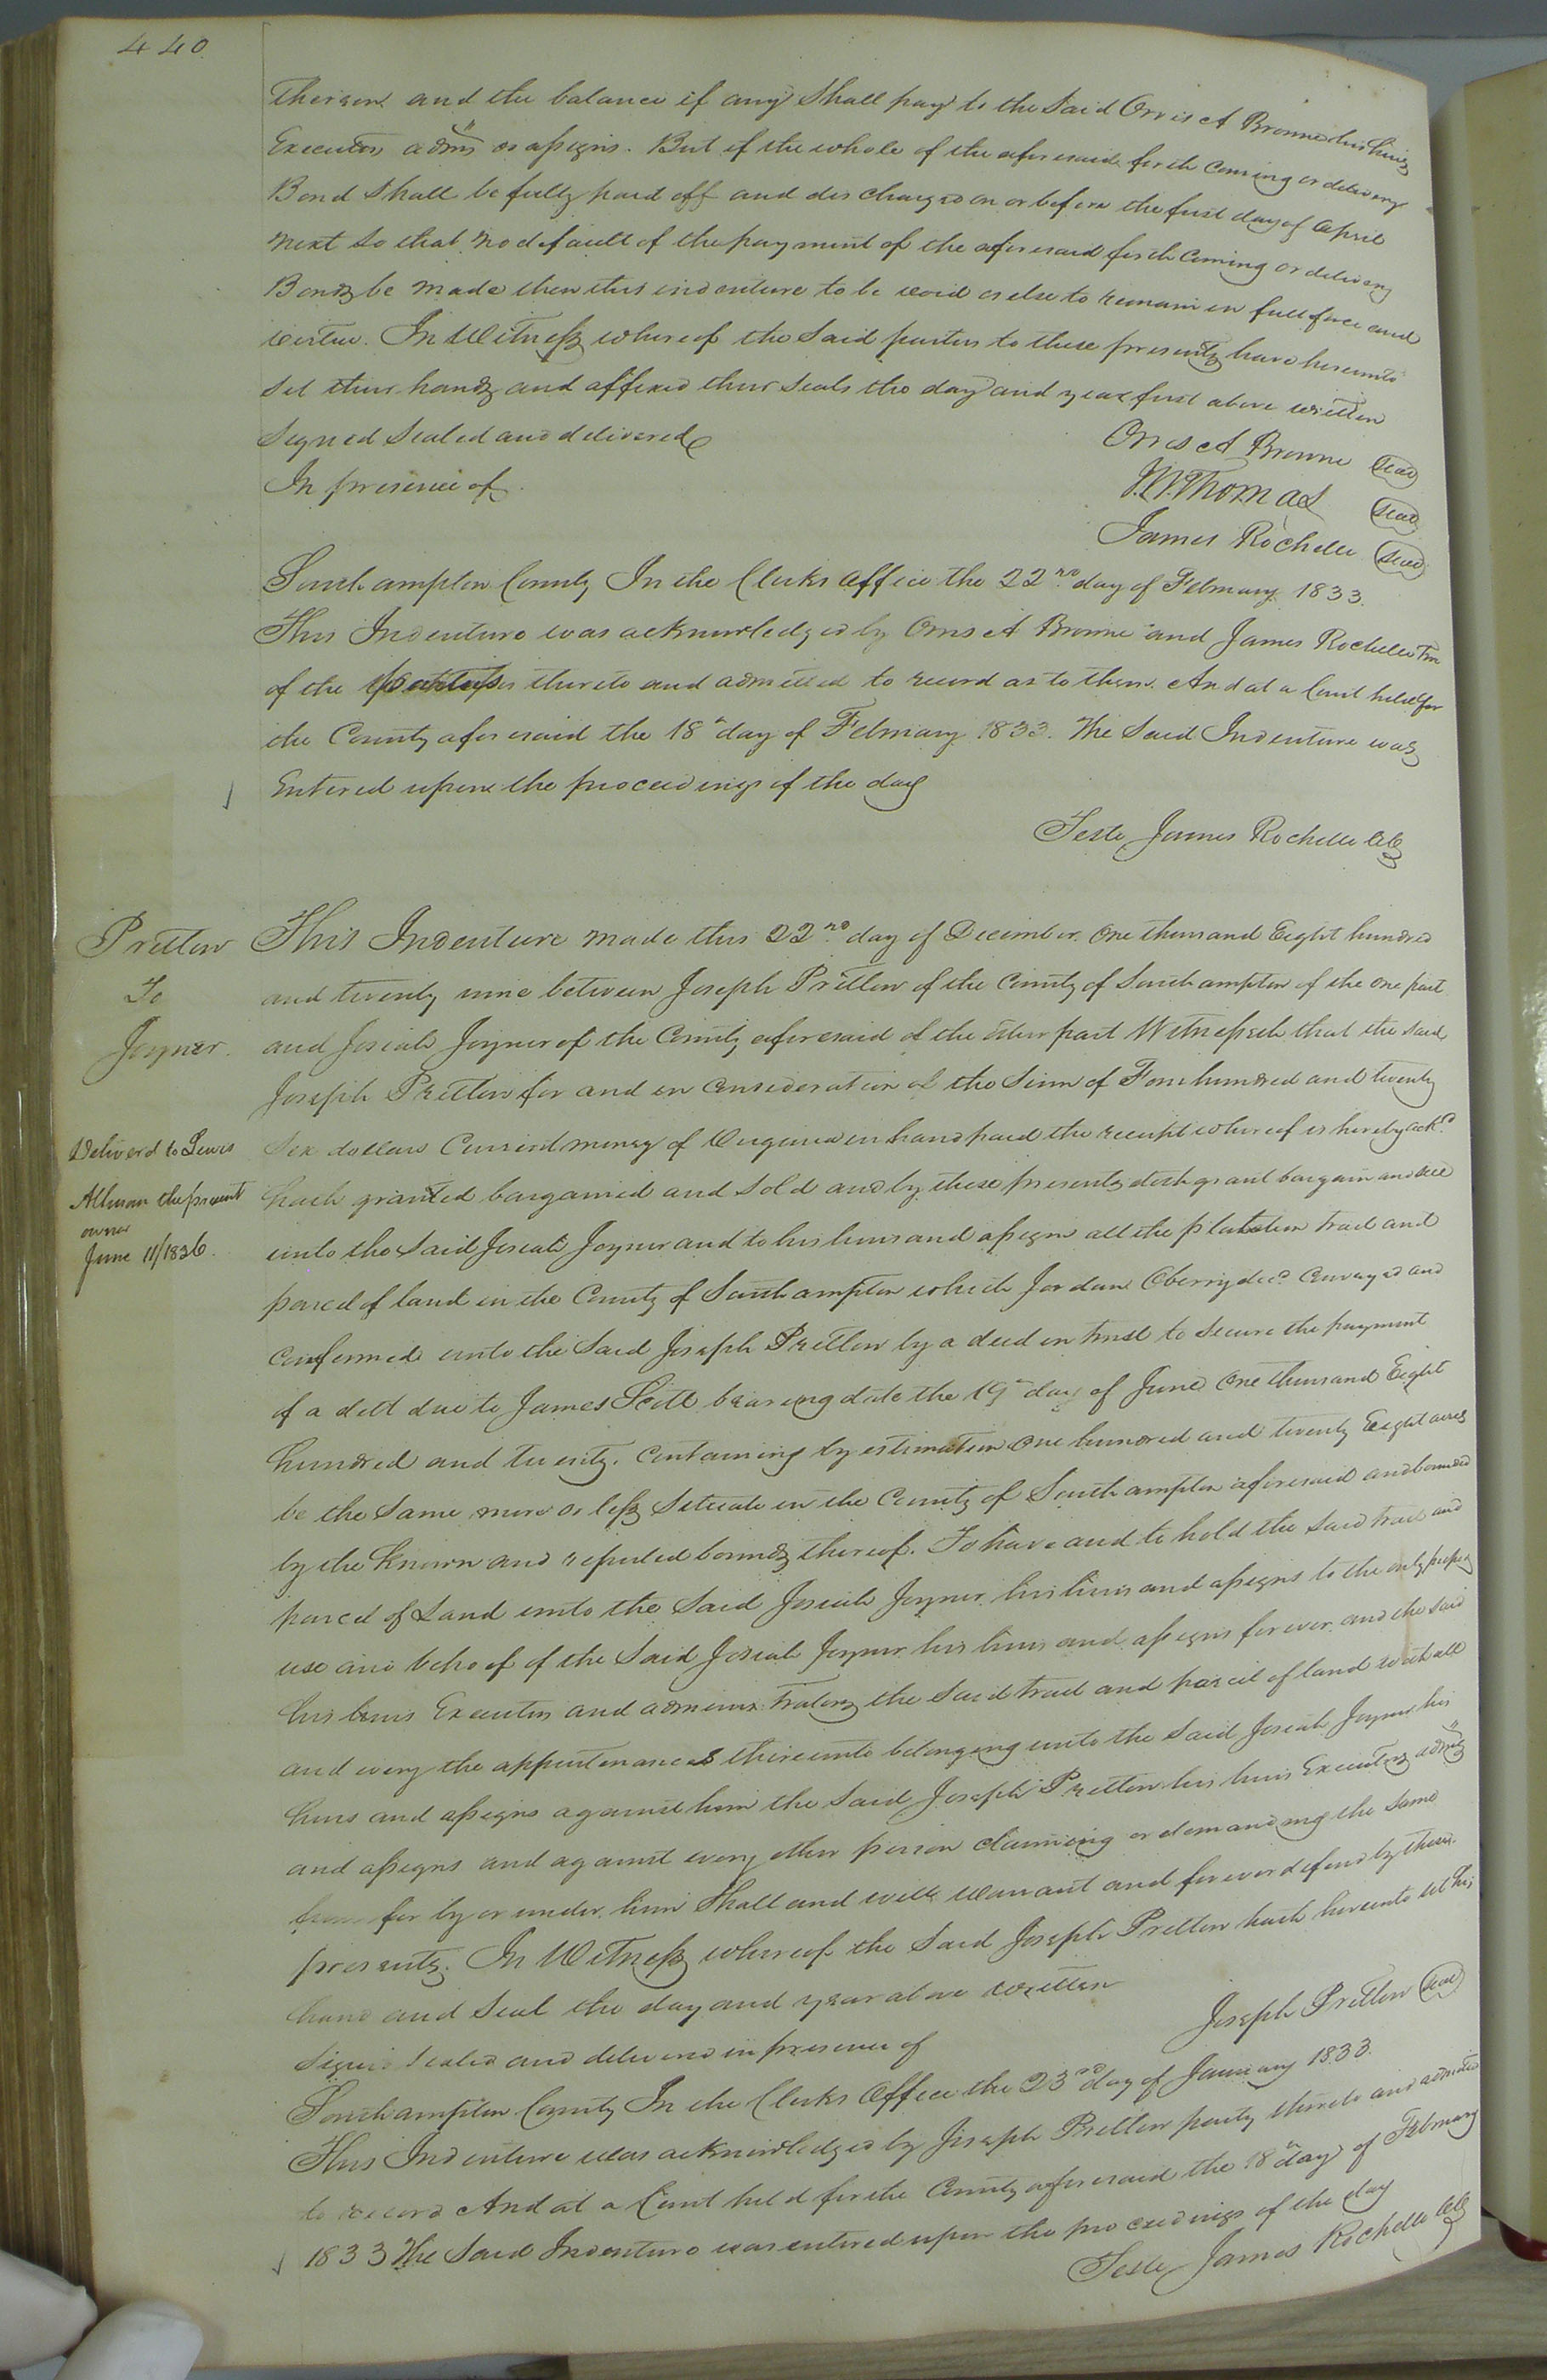 440
thereon and the balance if any shall pay to the said Orris A Browne his heirs
Executors admrs or assigns. But if the whole of the aforesaid forth coming or delivery
Bond shall be fully paid off and discharged on or before the first day of April
next so that no default of the payment of the aforesaid forth coming or delivery
Bonds be made then this indenture to be void or else to remain in full force and
virtue. In Witness whereof the said parties to these presents have hereunto
set their hands and affixed their seals the day and year first above written
Signed Sealed and delivered
In presence of
Orris A Browne Seal
Thomas Seal
James Rochelle Seal
Southampton County In the Clerks Office the 22nd day of February 1833.
This Indenture was acknowledged by Orris A Browne and James Rochelle Two
of the parties thereto and admitted to record as to them. And at a Court held for
the County aforesaid the 18th day of February 1833. The Said Indenture was
Entered upon the proceedings of the day
Teste James Rochelle ClC
Pretlow
To
Joyner.
Deliverd to Lewis
Allman the present
owner
June 11/1836.
This Indenture made this 22nd day of December One thousand Eight hundred
and twenty nine between Joseph Pretlow of the County of Southampton of the one part
and Josiah Joyner of the County aforesaid of the other part Witnesseth that the said
Joseph Pretlow for and in consideration of the Sum of Four hundred and twenty
Six dollars Current money of Virginia in hand paid the receipt whereof is hereby ackd
hath granted bargained and sold and by these presents doth grant bargain and sell
unto the said Josiah Joyner and to his heirs and assigns all the platation tract and
parcel of land in the County of Southampton which Jordan Oberry decd conveyed and
confermed unto the said Joseph Pretlow by a deed in trust to secure the payment
of a debt due to James Scott bearing date the 19th day of June One thousand Eight
hundred and twenty. Containing by estimation one hundred and twenty Eight acres
be the same more or less Situate in the County of Southampton aforesaid and bounded
by the known and reputed bounds thereof. To have and to hold the said tract and
parcel of Land unto the said Josiah Joyner his heirs and assigns to the only proper
use and behoof of the said Josiah Joyner his heirs and assigns forever and the said
his heirs Executors and administrators the said tract and parcel of land with all
and every the appurtenances thereunto belonging unto the said Josiah Joyner his
heirs and assigns against him the said Joseph Pretlow his heirs Executors admrs
and assigns and against every other person claiming or demanding the same
from for by or under him shall and will warrant and forever defend by these
presents. In Witness whereof the said Joseph Pretlow hath hereunto set his
hand and Seal the day and year above written
Signed Sealed and delivered in presence of
Joseph Pretlow Seal
Southampton County In the Clerks Office the 23rd day of January 1833.
This Indenture was acknowledged by Joseph Pretlow party thereto and admitted
to record And at a Court held for the County aforesaid the 18th day of February
1833 The Said Indenture was entered upon the proceedings of the day
Teste James Rochelle ClC